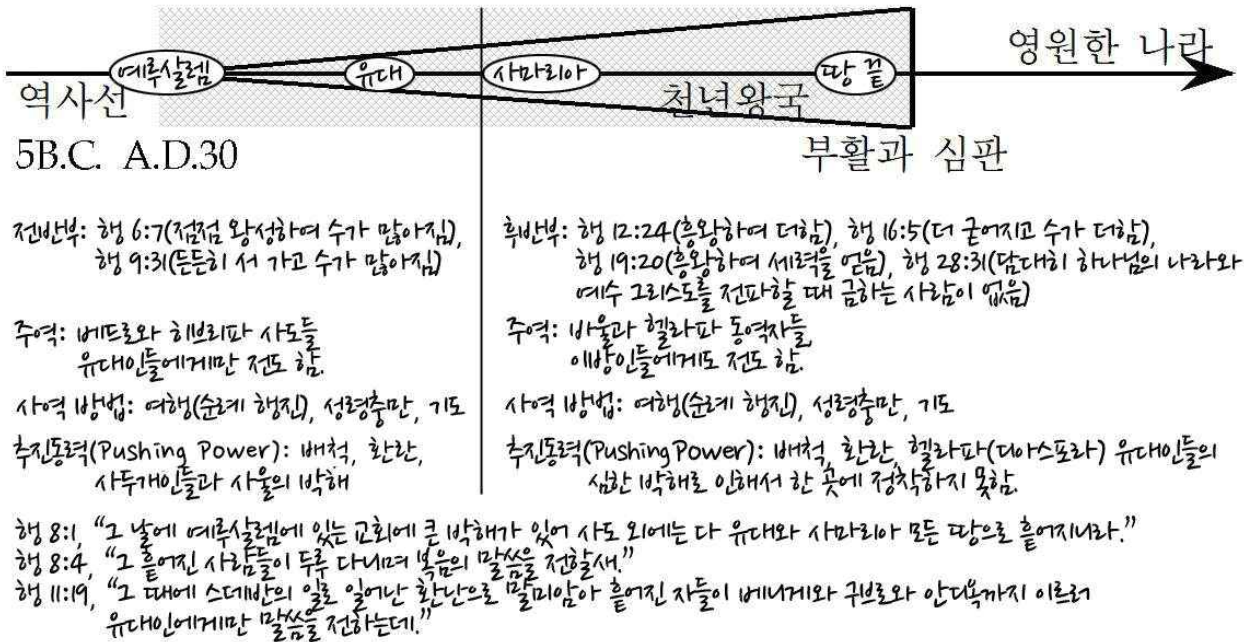 영원한 나라
예루살렘 유대 사마리아 땅 끝
역사선 천년왕국
5B.C. A.D.30 부활과 심판
전반부: 행 6:7(점점 왕성하여 수가 많아짐),
행 9:31(든든히 서 가고 수가 많아짐)
주역: 베드로와 히브리파 사도들
유대인들에게만 전도 함.
사역 방법: 여행(순례 행진), 성령충만, 기도
추진동력(Pushing Power): 배척, 환란,
사두개인들과 사울의 박해
후반부: 행 12:24(흥왕하여 더함), 행 16:5(더 굳어지고 수가 더함),
행 19:20(흥왕하여 세력을 얻음), 행 28:31(담대히 하나님의 나라와
예수 그리스도를 전파할 때 금하는 사람이 없음)
주역: 바울과 헬라파 동역자들
이방인들에게도 전도 함.
사역 방법: 여행(순례 행진), 성령충만, 기도
추진동력(Pushing Power): 배척, 환란, 헬라파(디아스포라) 유대인들의
심한 박해로 인해서 한 곳에 정착하지 못함.
행 8:1, “그 날에 예루살렘에 있는 교회에 큰 박해가 있어 사도 외에는 다 유대와 사마리아 모든 땅으로 흩어지니라.”
행 8:4, “그 흩어진 사람들이 두루 다니며 복음의 말씀을 전할새.”
행 11:19, “그 때에 스데반의 일로 일어난 환난으로 말미암아 흩어진 자들이 베니게와 구브로와 안디옥까지 이르러
유대인에게만 말씀을 전하는데.”